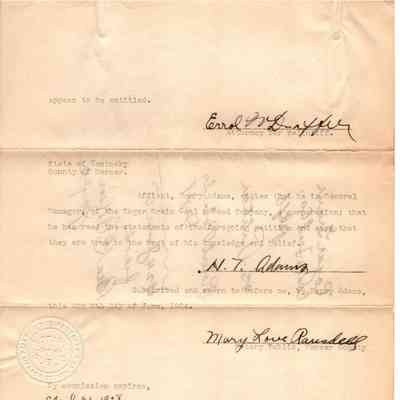 appear to be entitled.
Errol W Draffen
Attorney for Plaintiff.
State of Kentucky
County of Mercer.
Affiant, Harry Adams, states that he is General
Manager, of the Coal and Feed Company, a corporation; that
he has read the statements of the foregoing petition and says that
they are true to the best of his knowledge and belief.
H. T. Adams
Subscribed and sworn to before me, by Harry Adams,
this day of June,
Mary Love Ransdell
Notary Public, Mercer County
My commission expires,